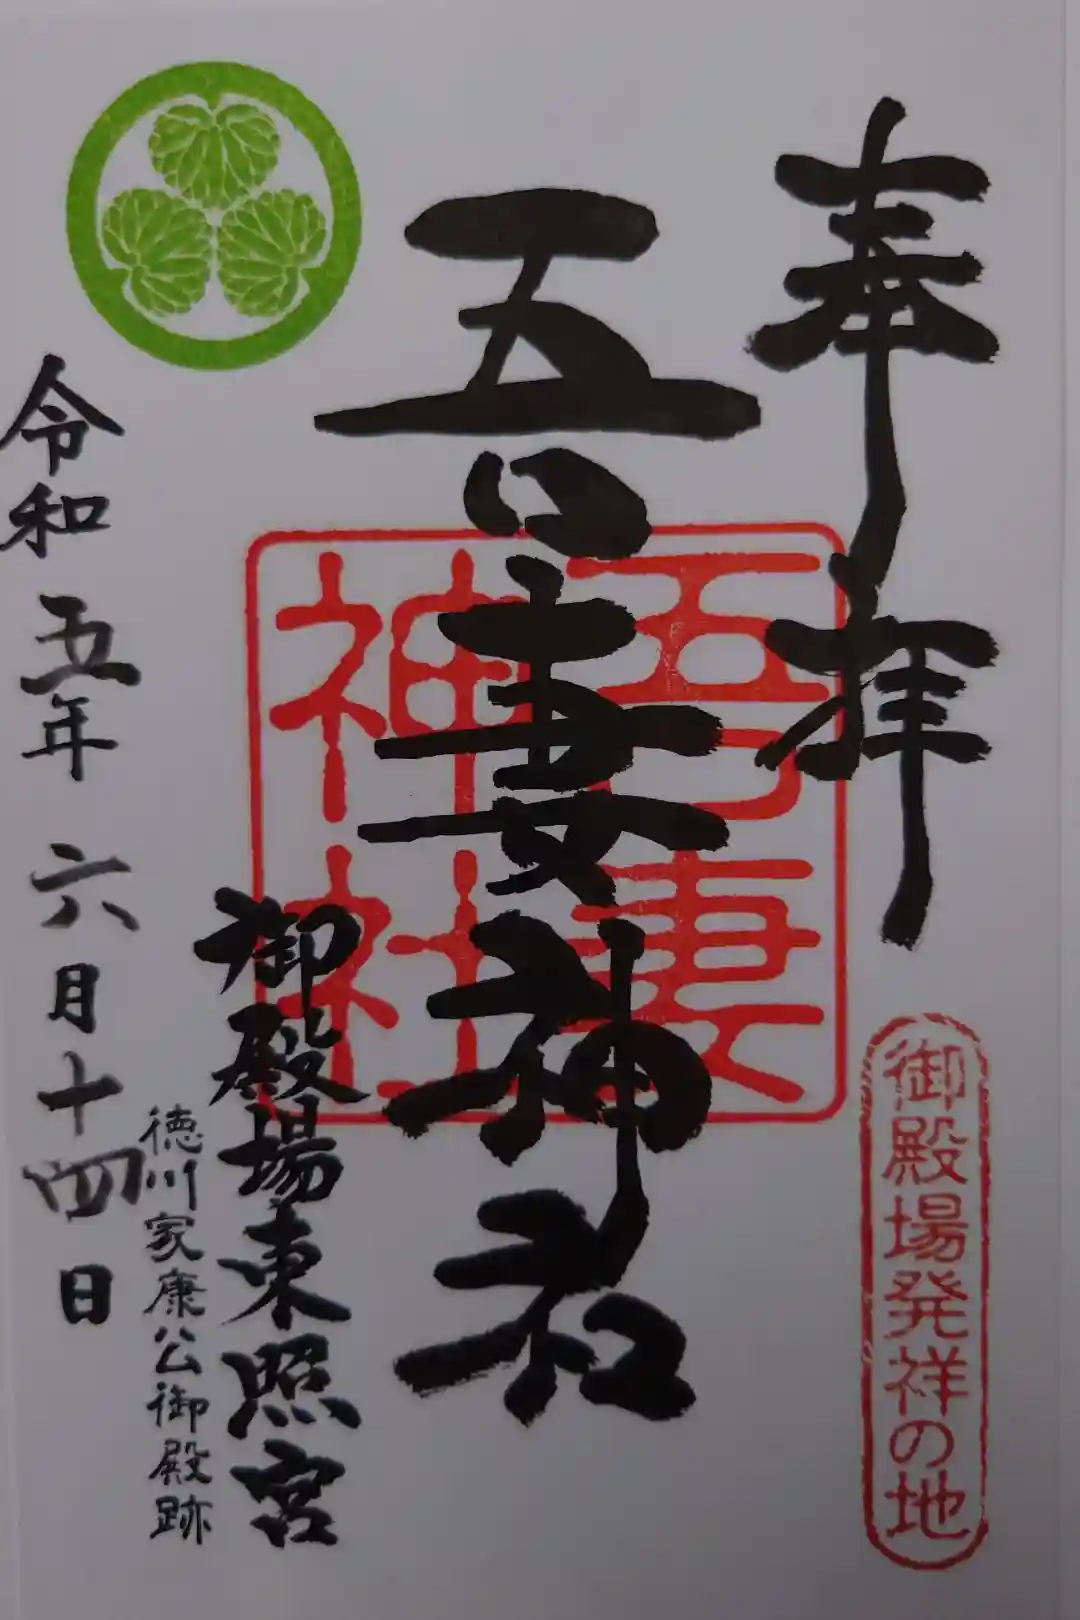 奉拝
御殿場発祥の地
吾妻神社
吾妻
神社
御殿場東照宮
徳川家康公御殿跡
令和五年六月十四日